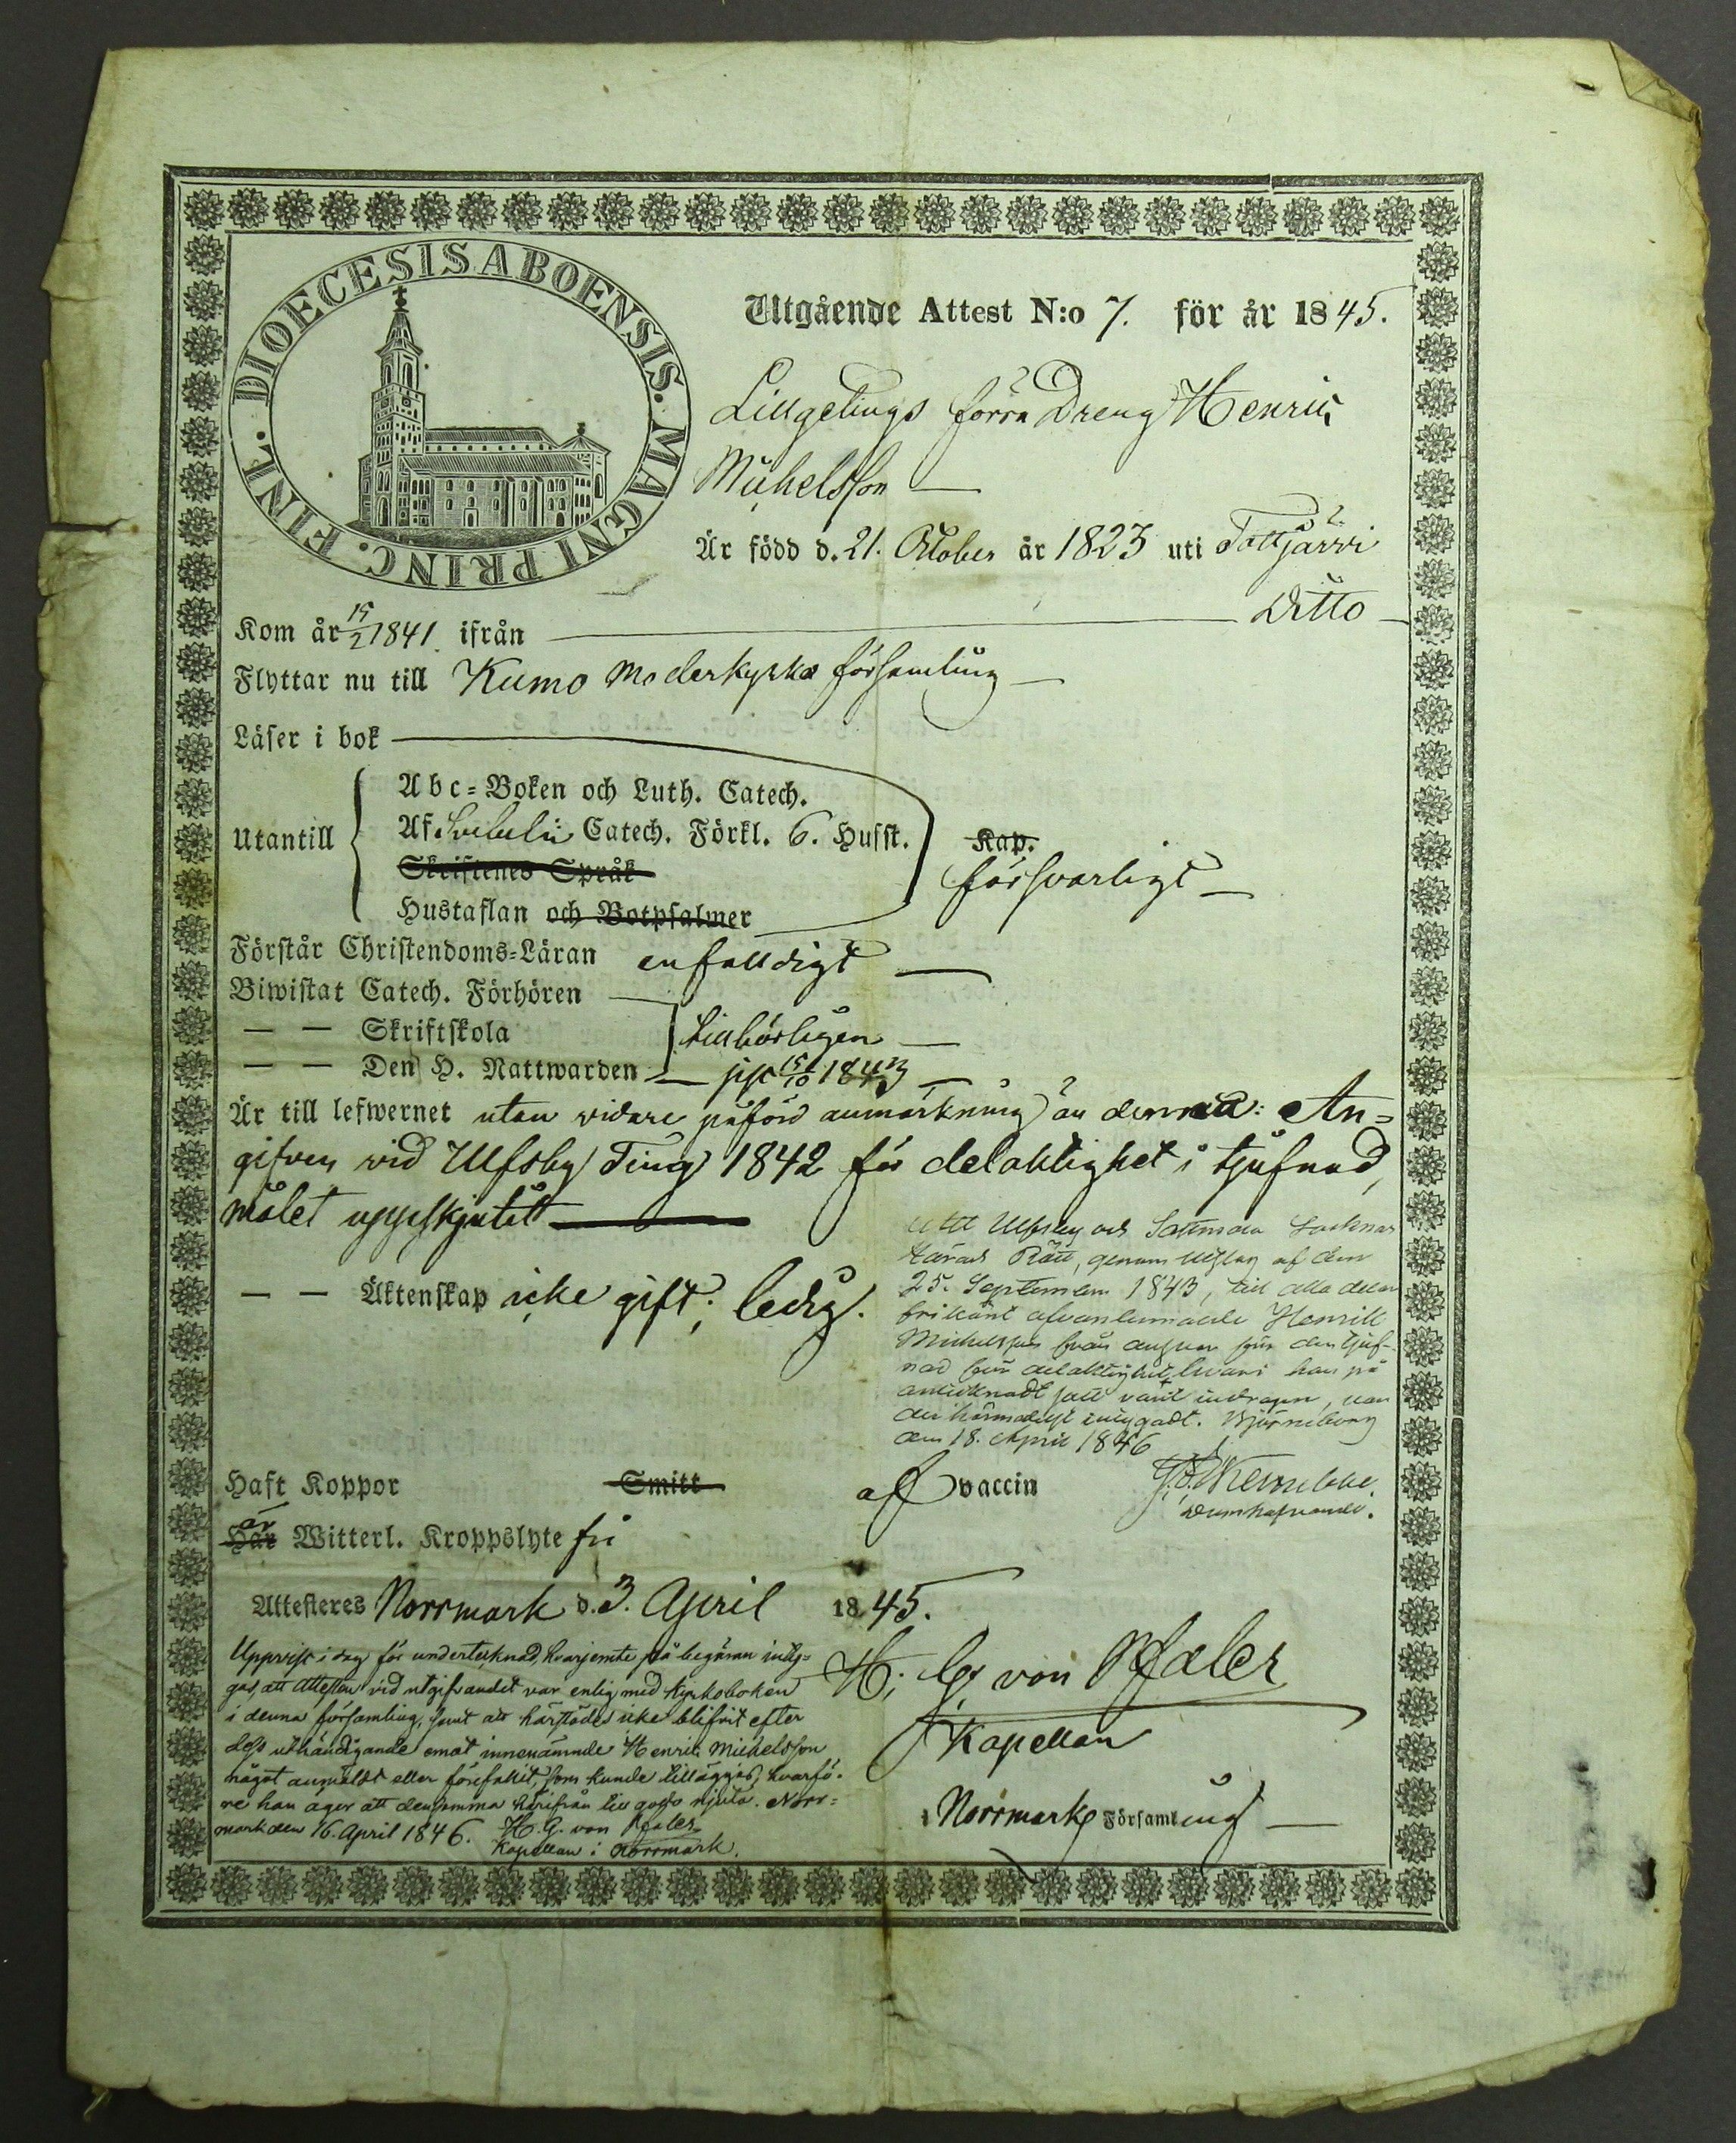 DIOECESIS ABOENSIS. MAGNI PRINC. FINL.
Utgående Attest N:o 7. för år 1845.
förra Dreng Henric
Michelsson
Är född d. 21. October år 1823 uti Tottjärvi
Kom år 15/2 1841. ifrån Ditto
Flyttar nu till Kumo Moderkyrko församling
Läser i bok
Utantill
Abc-Boken och Luth. Catech.
Af Svebelii Catech. Förkl. 6. Hufst. Kap.
Skriftenes Språk
försvarligt
Hustaflan och Botpsalmer
Förstår Christendoms-Läran enfalldigt
Biwistat Catech. Förhören
— — Skriftskola tillbörligen
— — Den H. Nattwarden sist 15/10 1843
Är till lefwernet utan vidare påförd anmärkning än denna: An=
gifven vid Ulfsby Ting 1842 för delaktighet i tjufnad,
målet uppskjutit
Att Ulfsby och Socknars
Härads Rätt, genom utslag af den
25. September 1843, till alla delar
frikänt Henrik
Michelsson från ansvar för den tjuf-
nad för delaktighet hvari han på
antecknadt satt varit indragen, varder
härmedelst intygadt. Björneborg
den 18. April 1846
— — Äktenskap icke gift; ledig.
Domhafvande.
Haft Koppor Smitt af vaccin
Har är Witterl. Kroppslyte fri
Attesteres Norrmark d. 3. April 1845.
H. G. von Pfaler
Kapellan
i Norrmark Församling
Uppvist i dag för undertecknad, hvarjemte på begäran inty=
gas, att Attesten vid utgifvandet var enlig med kyrkoboken
i denna församling, samt att härstädes icke blifvit efter
dess uthändigande emot innenämnde Henric Michelsson
något anmäldt eller förefallit, som kunde tilläggas, hvarfö=
re han äger att densamma härifrån till godo njuta. Norr=
mark den 16. April 1846. H. G. von Pfaler
Kapellan i Norrmark.